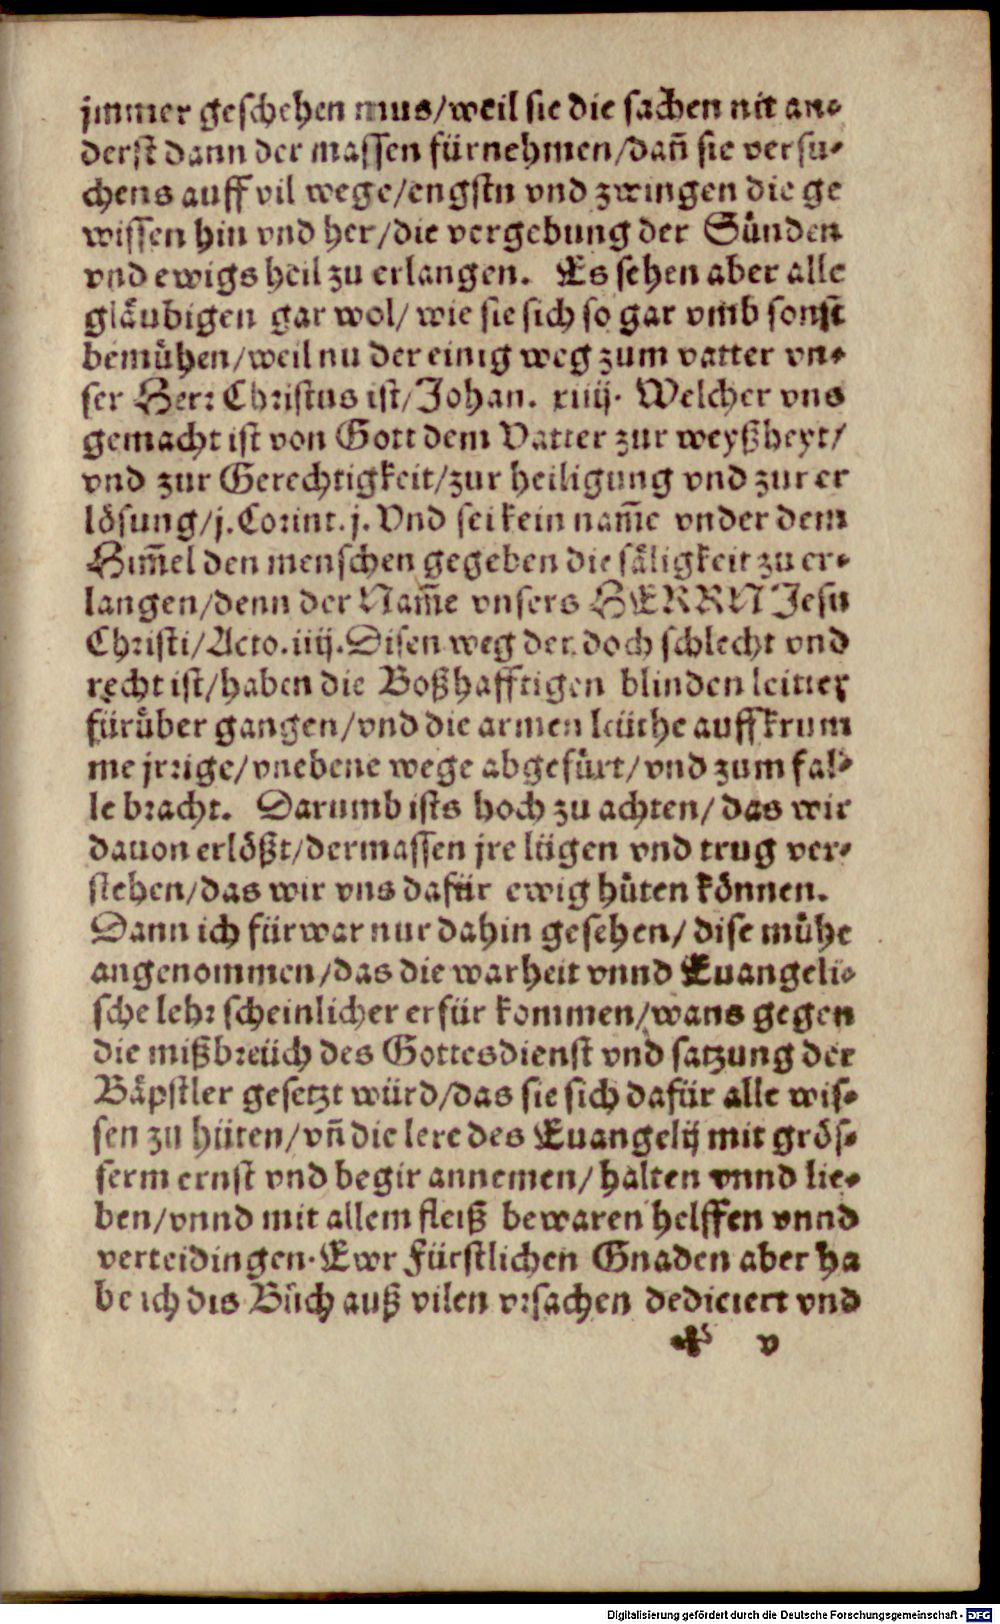 jmmer geschehen mus/weil sie die sachen nit an-
derst dann der massen fürnehmen/dañ sie versu-
chens auff vil wege/engstn vnd zwingen die ge
wissen hin vnd her/die vergebung der Sünden
vnd ewigs heil zu erlangen. Es sehen aber alle
gläubigen gar wol/ wie sie sich so gar vmb sonst
bemühen/weil nu der einig weg zum vatter vn-
ser Herr Christus ist/Johan. xiiij. Welcher vns
gemacht ist von Gott dem Vatter zur weyßheyt/
vnd zur Gerechtigkeit/zur heiligung vnd zur er
lösung/j. Corint. j. Vnd sei kein nam̃e vnder dem
Him̃el den menschen gegeben die säligkeit zu er-
langen/denn der Nam̃e vnsers HERRN Jesu
Christi/Acto. iiij. Disen weg der doch schlecht vnd
recht ist/haben die Boßhafftigen blinden leitter
fürüber gangen/vnd die armen leüthe auff krum
me jrrige/vnebene wege abgefürt/vnd zum fal-
le bracht. Darumb ists hoch zu achten/das wir
dauon erlößt/dermassen jre lügen vnd trug ver-
stehen/das wir vns dafür ewig hüten können.
Dann ich fürwar nur dahin gesehen/ dise mühe
angenommen/das die warheit vnnd Euangeli-
sche lehr scheinlicher erfür kommen/wans gegen
die mißbreüch des Gottesdienst vnd satzung der
Bäpstler gesetzt würd/das sie sich dafür alle wis-
sen zu hüten/vñ die lere des Euangelij mit grös-
serm ernst vnd begir annemen/halten vnnd lie-
ben/vnnd mit allem fleiß bewaren helffen vnnd
verteidingen. Ewr Fürstlichen Gnaden aber ha
be ich dis Büch auß vilen vrsachen dediciert vnd
✤ v
Digitalisierung gefördert durch die Deutsche Forschungsgemeinschaft - DFG